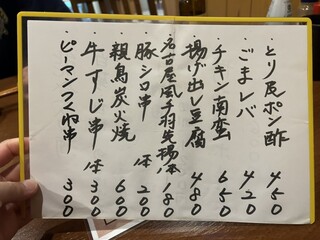 ・とり皮ポン酢 450
・ごまレバ 420
・チキン南蛮 650
・揚げ出し豆腐 480
・名古屋風手羽先揚 1本 180
・豚シロ串 1本 200
・親鳥炭火焼 600
・牛すじ串 1本 300
・ピーマンつくね串 300